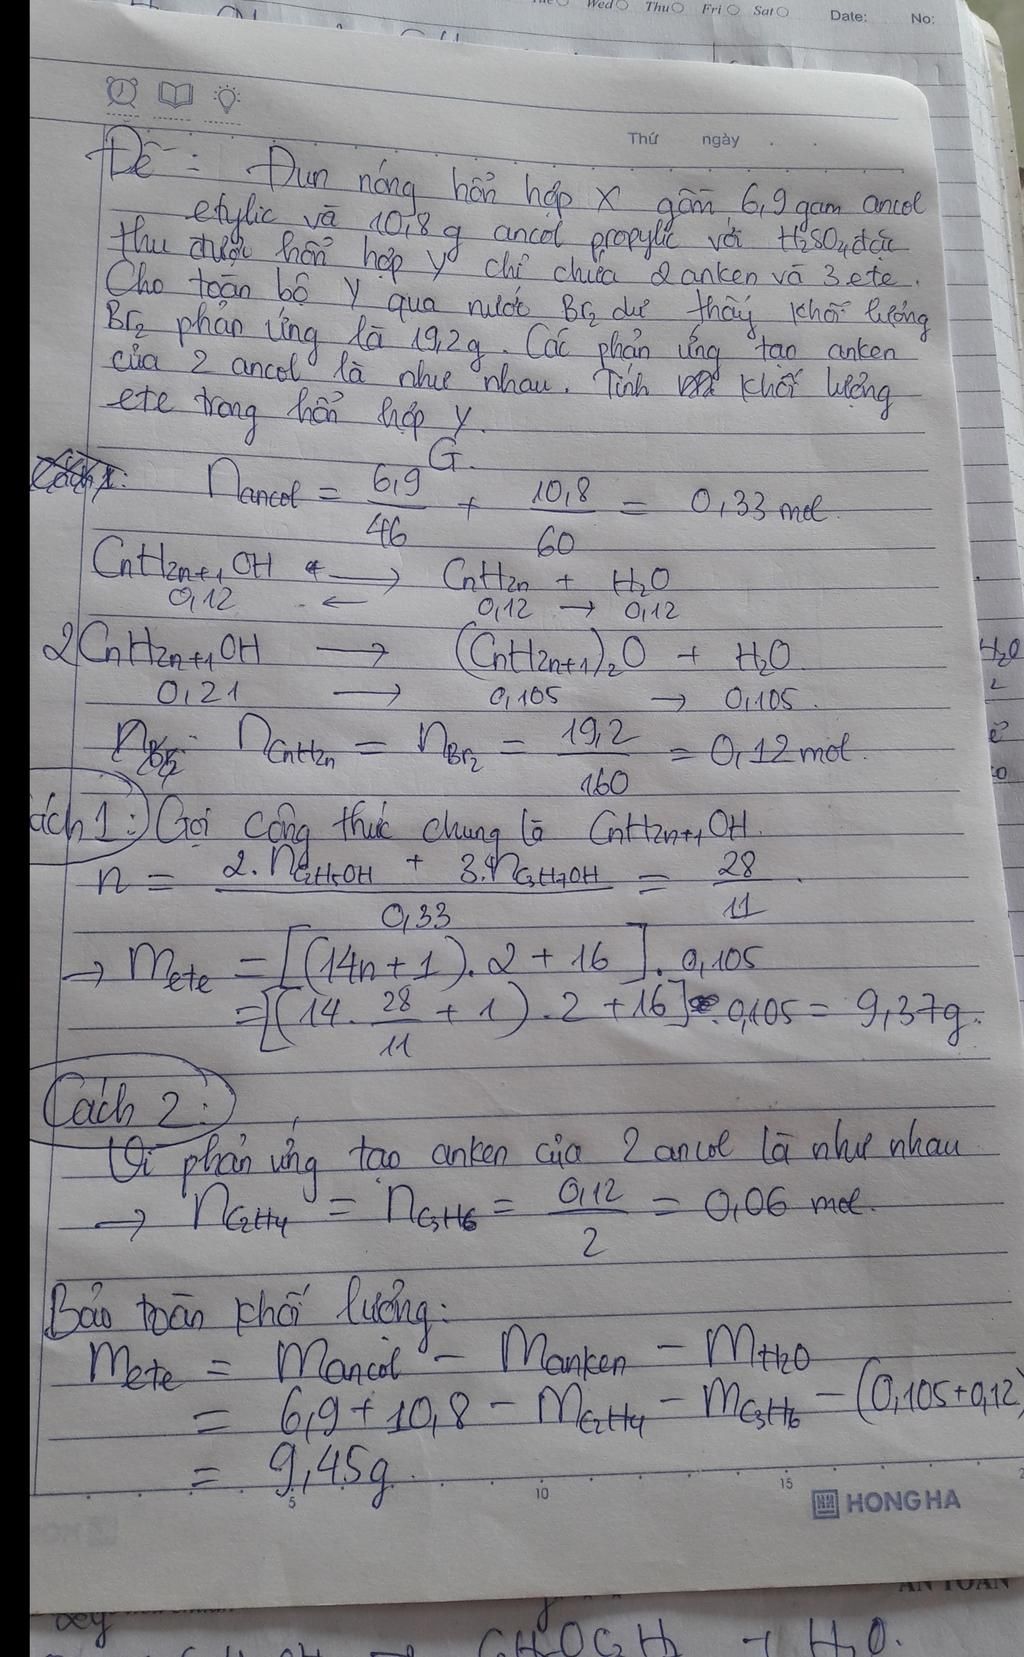 Wed Thu Fri Sat Date: No:
Thứ ngày
Đề: Đun nóng hỗn hợp X gồm 6,9 gam ancol
etylic và 10,8 g ancol propylic với H2SO4 đặc
thu được hỗn hợp Y chỉ chứa 2 anken và 3 ete.
Cho toàn bộ Y qua nước Br2 dư thấy khối lượng
Br2 phản ứng là 19,2g. Các phản ứng tạo anken
của 2 ancol là như nhau. Tính khối lượng
ete trong hỗn hợp Y.
G.
nancol = 6,9/46 + 10,8/60 = 0,33 mol.
CnH2n+1OH ⟶ CnH2n + H2O
0,12 ← 0,12 → 0,12
2CnH2n+1OH ⟶ (CnH2n+1)2O + H2O
0,21 ⟶ 0,105 → 0,105.
nCnH2n = nBr2 = 19,2/160 = 0,12 mol.
ách 1: Gọi công thức chung là CnH2n+1OH.
n = (2.nC2H5OH + 3.nC3H7OH)/0,33 = 28/11.
→ mete = [(14n+1).2 + 16].0,105
= [(14.28/11 + 1).2 + 16].0,105 = 9,37g.
Cách 2:
Vì phản ứng tạo anken của 2 ancol là như nhau
→ nC2H4 = nC3H6 = 0,12/2 = 0,06 mol.
Bảo toàn khối lượng:
mete = mancol - manken - mH2O
= 6,9 + 10,8 - mC2H4 - mC3H6 - (0,105+0,12)
= 9,45g.
5 10 15
HONG HA
AN TOAN
H2O.